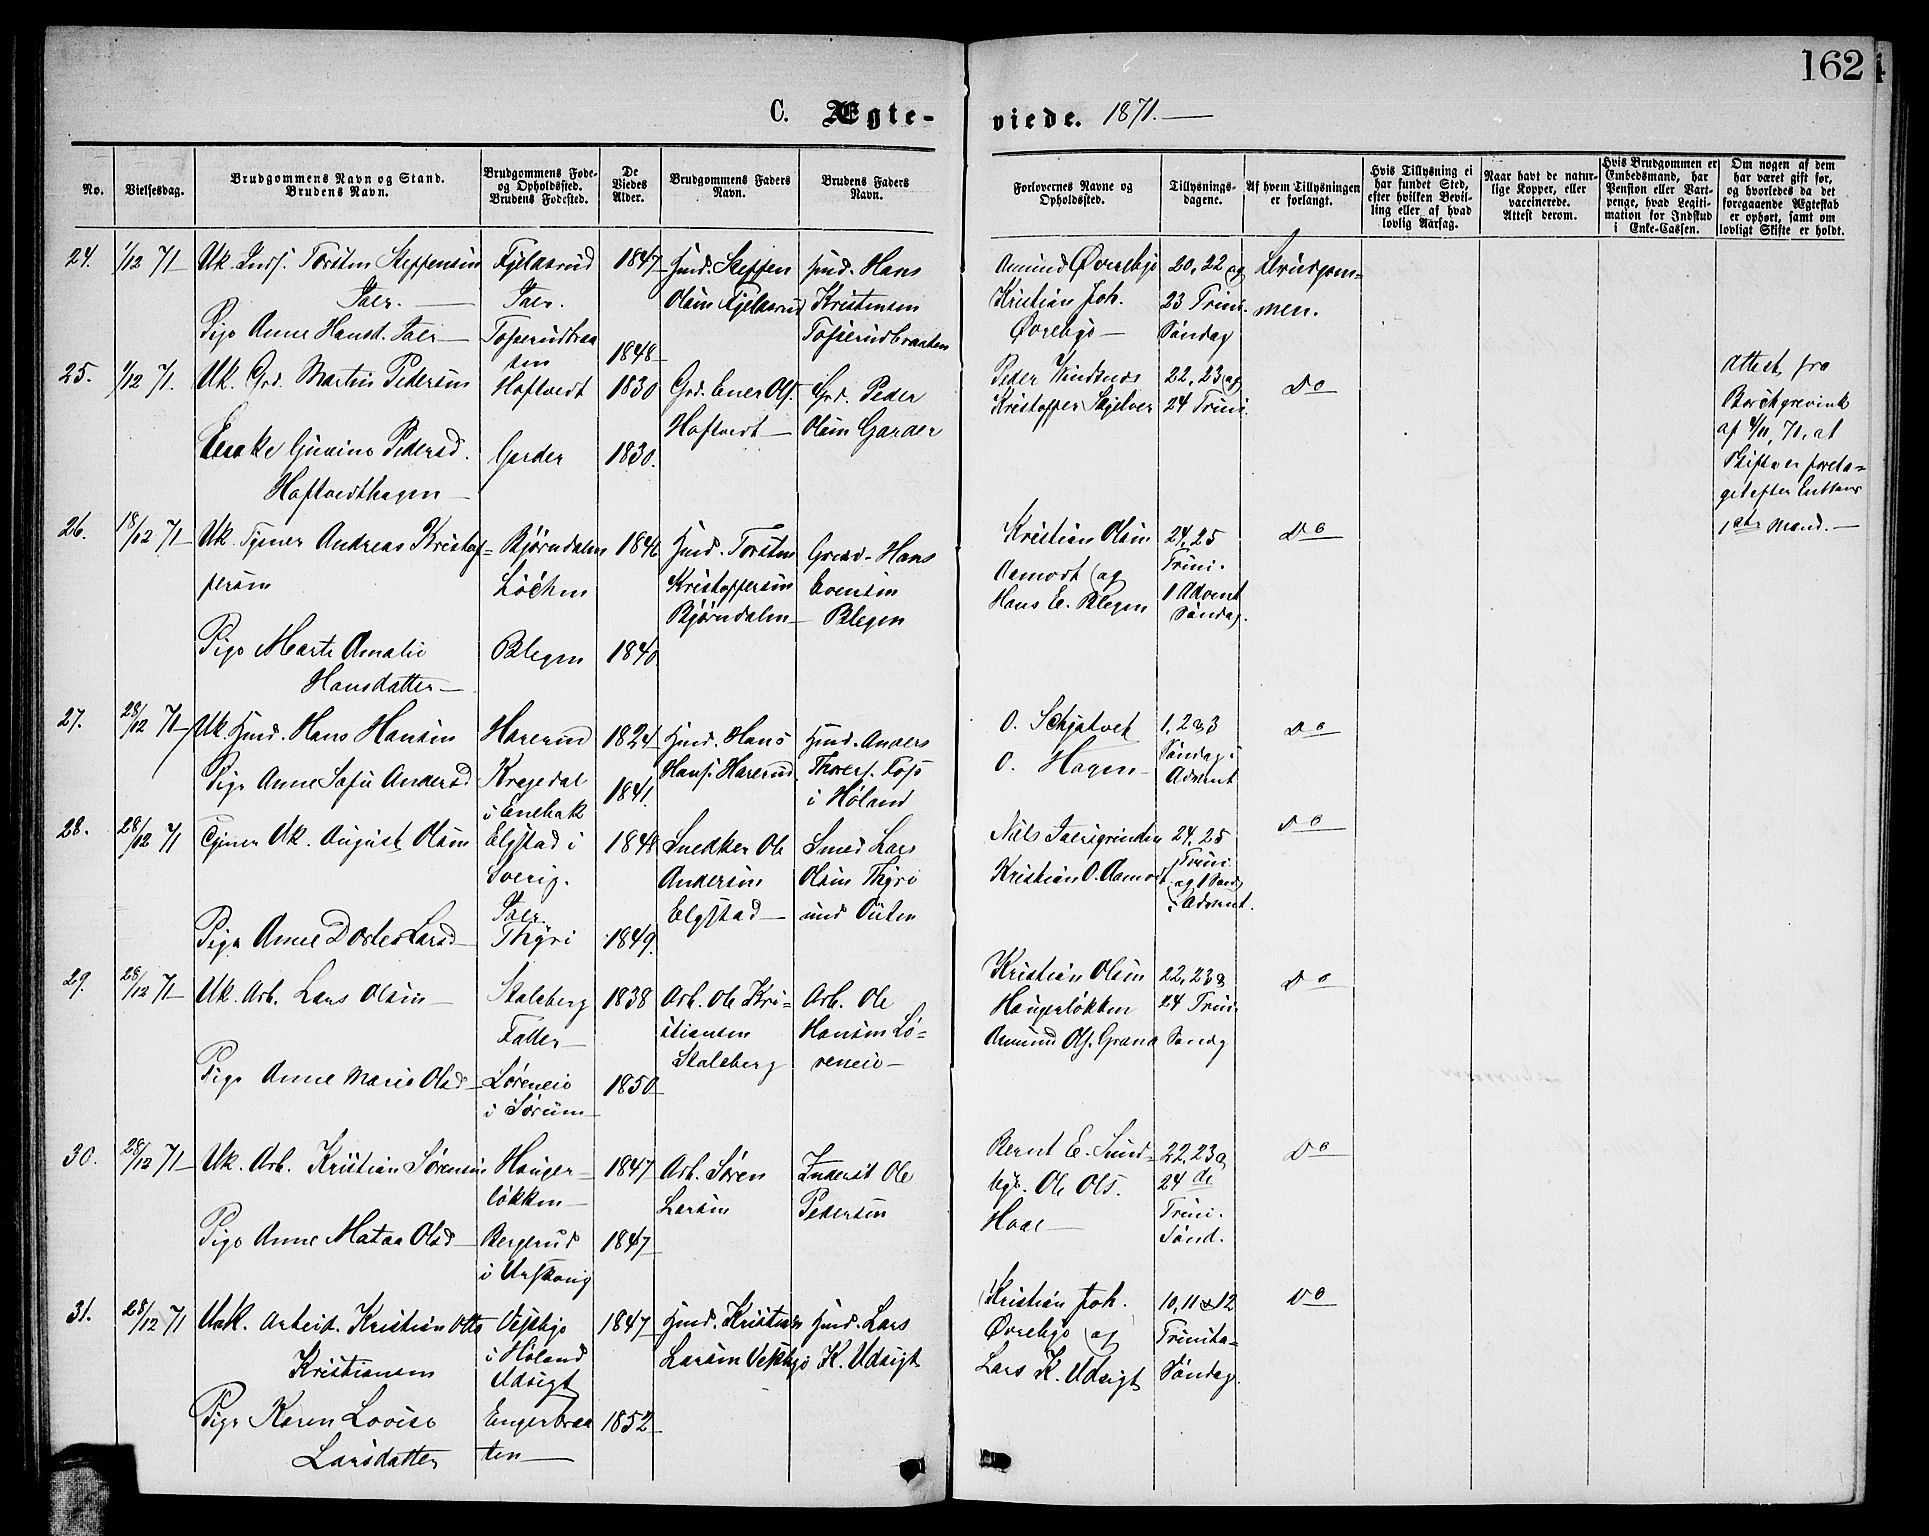 162
C. Ægte-
viede. 1871.
No.
Vielsesdag.
Brudgommens Navn og Stand.
Brudens Navn.
Brudgommens Føde-
og Opholdssted.
Brudens Fødested.
De
Viedes
Alder.
Brudgommens Faders
Navn.
Brudens Faders
Navn.
Forlovernes Navne og
Opholdssted.
Tillysnings-
dagene.
Af hvem Tillysningen
er forlangt.
Hvis Tillysning ei
har fundet Sted,
efter hvilken Bevil-
ling eller af hvad
lovlig Aarsag.
Naar havt de natur-
lige Kopper, eller
vaccinerede.
Attest derom.
Hvis Brudgommen er
Embedsmand, har
Pension eller Vart-
penge, hvad Legiti-
mation for Indskud
i Enke-Cassen.
Om nogen af dem
har været gift før,
og hvorledes da det
foregaaende Ægteskab
er ophørt, samt om
lovligt Skifte er holdt.
24.
1/12 71
Uk. Inds. Torsten Steffensen
Taer.
Pige Anne Hansd. Taer
Fjeldsrud
Taer.
Tofserudbraa
ten
1847
1848
Hmd. Steffen
Olsen Fjeldsrud
Hmd. Hans
Kristensen
Tofserudbraaten
Amund Øvrebyø
Kristian Joh.
Øvrebyø
20, 22 og
23 Trini.
Søndag
Brudgom-
men.
25.
1/12 71.
Uk. Grd. Martin Pedersen
Enke Guvine Pedersd.
Hoftvedthagen
Hoftvedt
Garder
1830
1830.
Grd. Ener Ols.
Hoftvedt
Grd. Peder
Olsen Garder
Peder Vindsnes
Kristoffer Skjelver
22, 23 og
24 Trini.
Do
Attest fra
Borchgrevink
af 4/11, 71, at
Skifte er foreta-
get efter Enkens
1ste Mand.
26.
18/12 71
Uk. Tjener Andreas Kristof-
fersen
Pige Marte Amalie
Hansdatter
Bjørndalen
Løchen
Blegen
1846
1840
Hmd. Torsten
Kristoffersen
Bjørndalen
Grmd. Hans
Evensen
Blegen
Kristian Olsen
Aamodt og
Hans E. Blegen
24, 25
Trini.
1 Advent
Søndag.
Do
27.
28/12 71
Uk. Hmd. Hans Hansen
Pige Anne Sofie Andersd
Harerud
Kragedal
i Enebak
1824
1841.
Hmd. Hans
Hans. Harerud
Hmd. Anders
Thores. Fos
i Høland
O. Schjatvet
O. Hagen
1, 2 & 3
Søndag i
Advent
Do
28.
28/12 71
Tjener Uk. August Olsen
Pige Anne Dortea Larsd
Elgstad i
Sverig.
Taer.
Thyri
1848
1849.
Snedker Ole
Andersen
Elgstad
Smed Lars
Olsen Thyri
Nils Taersgrinden
Kristian O. Aamodt
24, 25
Trini.
og 1 Sønd
i Advent.
Do
29.
28/12 71
Uk. Arb. Lars Olsen
Pige Anne Marie Olsd
Stalsberg
Faller
Løreneie
i Sørum
1838
1850
Arb. Ole Kri-
stiansen
Stalsberg
Arb. Ole
Hansen Lø-
reneie
Kristian Olsen
Haugerløkken
Amund Ols. Grana
22, 23 &
24 Trini.
Søndg
Do
30.
28/12 71
Uk. Arb. Kristian Sørensen
Pige Anne Matea Olsd
Hauger-
løkken
Bergerud
i Urskoug
1847
1847
Arb. Søren
Larsen
Inderst Ole
Pedersen
Bernt E. Sund-
bye. Ole Ols.
Haae
22, 23 &
24 de
Trini.
Sønd.
Do
31.
28/12 71
Uk. Arbeid. Kristian Otto
Kristiansen
Pige Karen Lovise
Larsdatter
Vejebyø
i Høland
Udsigt
Engerbraa
ten
1847
1852
Hmd. Kristian
Larsen Vejebyø
Hmd. Lars
K. Udsigt
Kristian Joh.
Øvrebyø og
Lars K. Udsigt
10, 11 & 12
Trinita-
Søndag.
Do